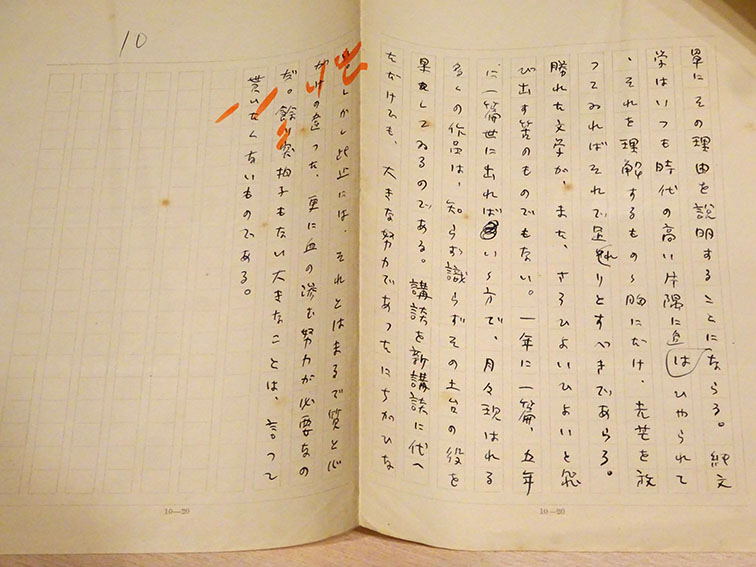 単にその理由を説明することにならる。純文
学はいつも時代の高い片隅に追はひやられて
、それを理解するものゝ胸にだけ、光芒を放
つてゐればそれで足れりとすべきであらう。
勝れた文学が、また、さうひよいひよいと飛
び出す筈のものでもない。一年に一篇、五年
に一篇世に出ればいゝ方で、月々現はれる
多くの作品は、知らず識らずその土台の役を
果をしてゐるのである。講談を新講談に代へ
ただけでも、大きな努力であつたにちがひな
い。しかし此上には、それとはまるで質と心
がけの違つた、更に血の滲む努力が必要なの
だ。餘り突拍子もない大きなことは、言つて
貰いたくないものである。
10
10—20
10—20